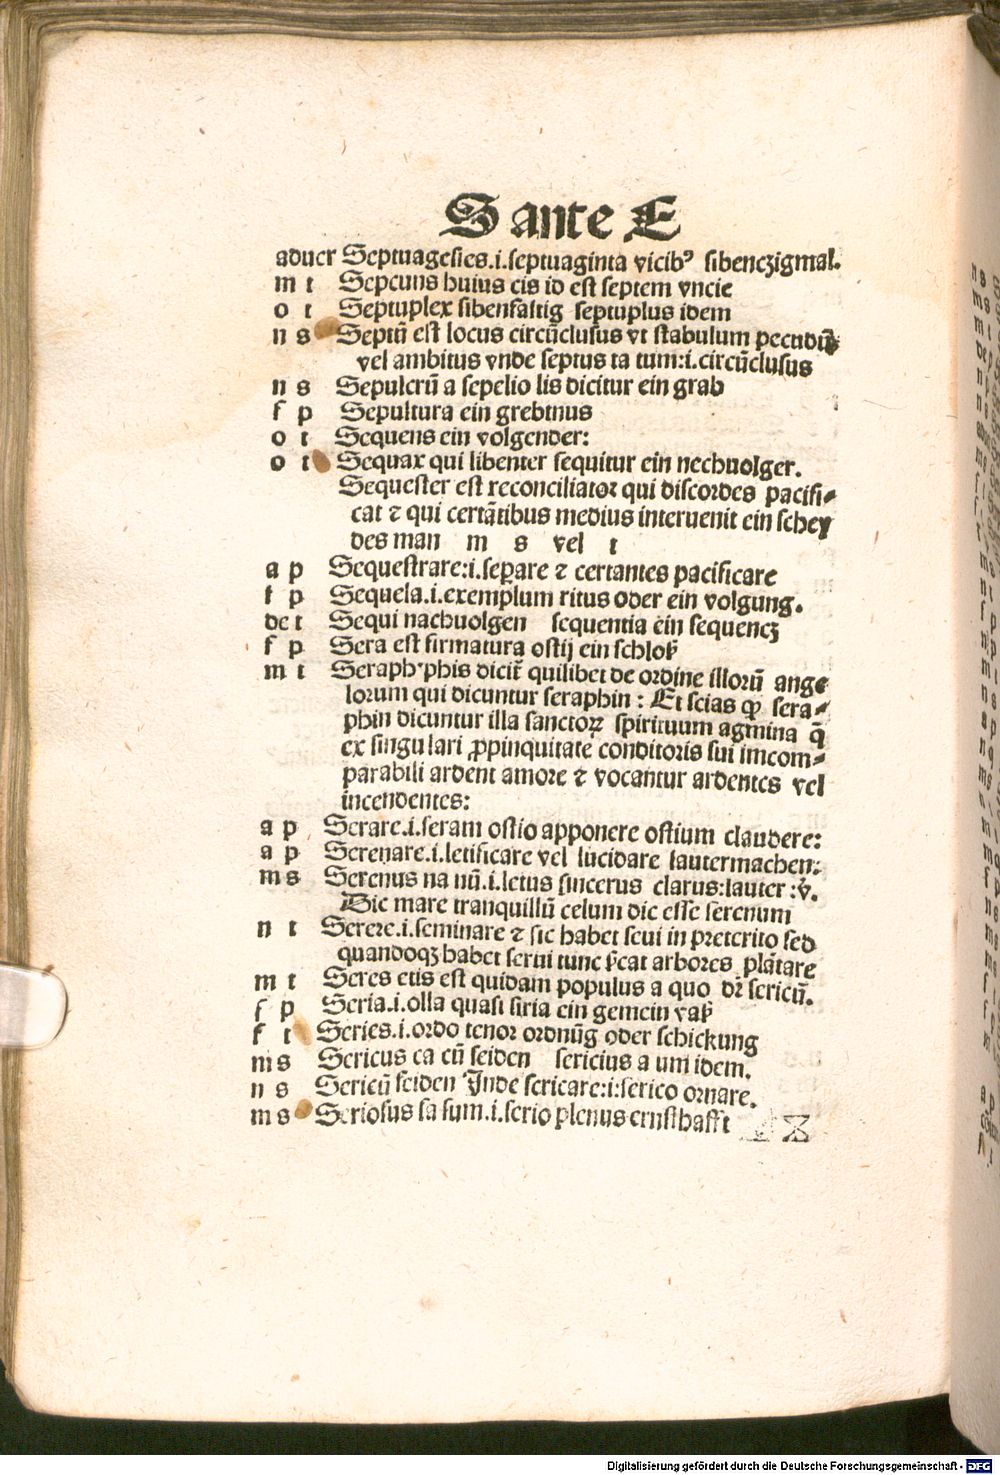 S ante E
aduer Septuagesies.i.septuaginta vicibꝰ sibenczigmal.
m t Sepcuns huius cis id est septem vncie
o t Septuplex sibenfaltig septuplus idem
n s Septū est locus circūclusus vt stabulum pecudū
vel ambitus vnde septus ta tum:i.circūclusus
n s Sepulcrū a sepelio lis dicitur ein grab
f p Sepultura ein grebtnus
o t Sequens ein volgender:
o t Sequax qui libenter sequitur ein nechuolger.
Sequester est reconciliator qui discordes pacifi-
cat ⁊ qui certātibus medius interuenit ein schey
des man m s vel t
a p Sequestrare:i.seꝑare ⁊ certantes pacificare
f p Sequela.i.exemplum ritus oder ein volgung.
de t Sequi nachuolgen sequentia ein sequencz
f p Sera est firmatura ostij ein schloß
m t Seraph phis dicit̄ quilibet de ordine illorū ange
lorum qui dicuntur seraphin : Et scias ꝙ sera-
phin dicuntur illa sanctoꝝ spirituum agmina q̄
ex singulari ꝓpinquitate conditoris sui imcom-
parabili ardent amore ⁊ vocantur ardentes vel
incendentes:
a p Serare.i.seram ostio apponere ostium claudere:
a p Serenare.i.letificare vel lucidare lautermachen:
m s Serenus na nū.i.letus sincerus clarus:lauter:v̄.
Dic mare tranquillū celum dic esse serenum
n t Serere.i.seminare ⁊ sic habet seui in preterito sed
quandoqꝫ habet serui tunc s̄cat arbores plātare
m t Seres etis est quidam populus a quo dr̄ sericū.
f p Seria.i.olla quasi siria ein gemein vaß
f t Series.i.ordo tenor ordnūg oder schickung
m s Sericus ca cū seiden sericius a um idem.
n s Sericū seiden Inde sericare:i:serico ornare.
m s Seriosus sa sum.i.serio plenus ernsthafft
n s
m s
Digitalisierung gefördert durch die Deutsche Forschungsgemeinschaft - DFG